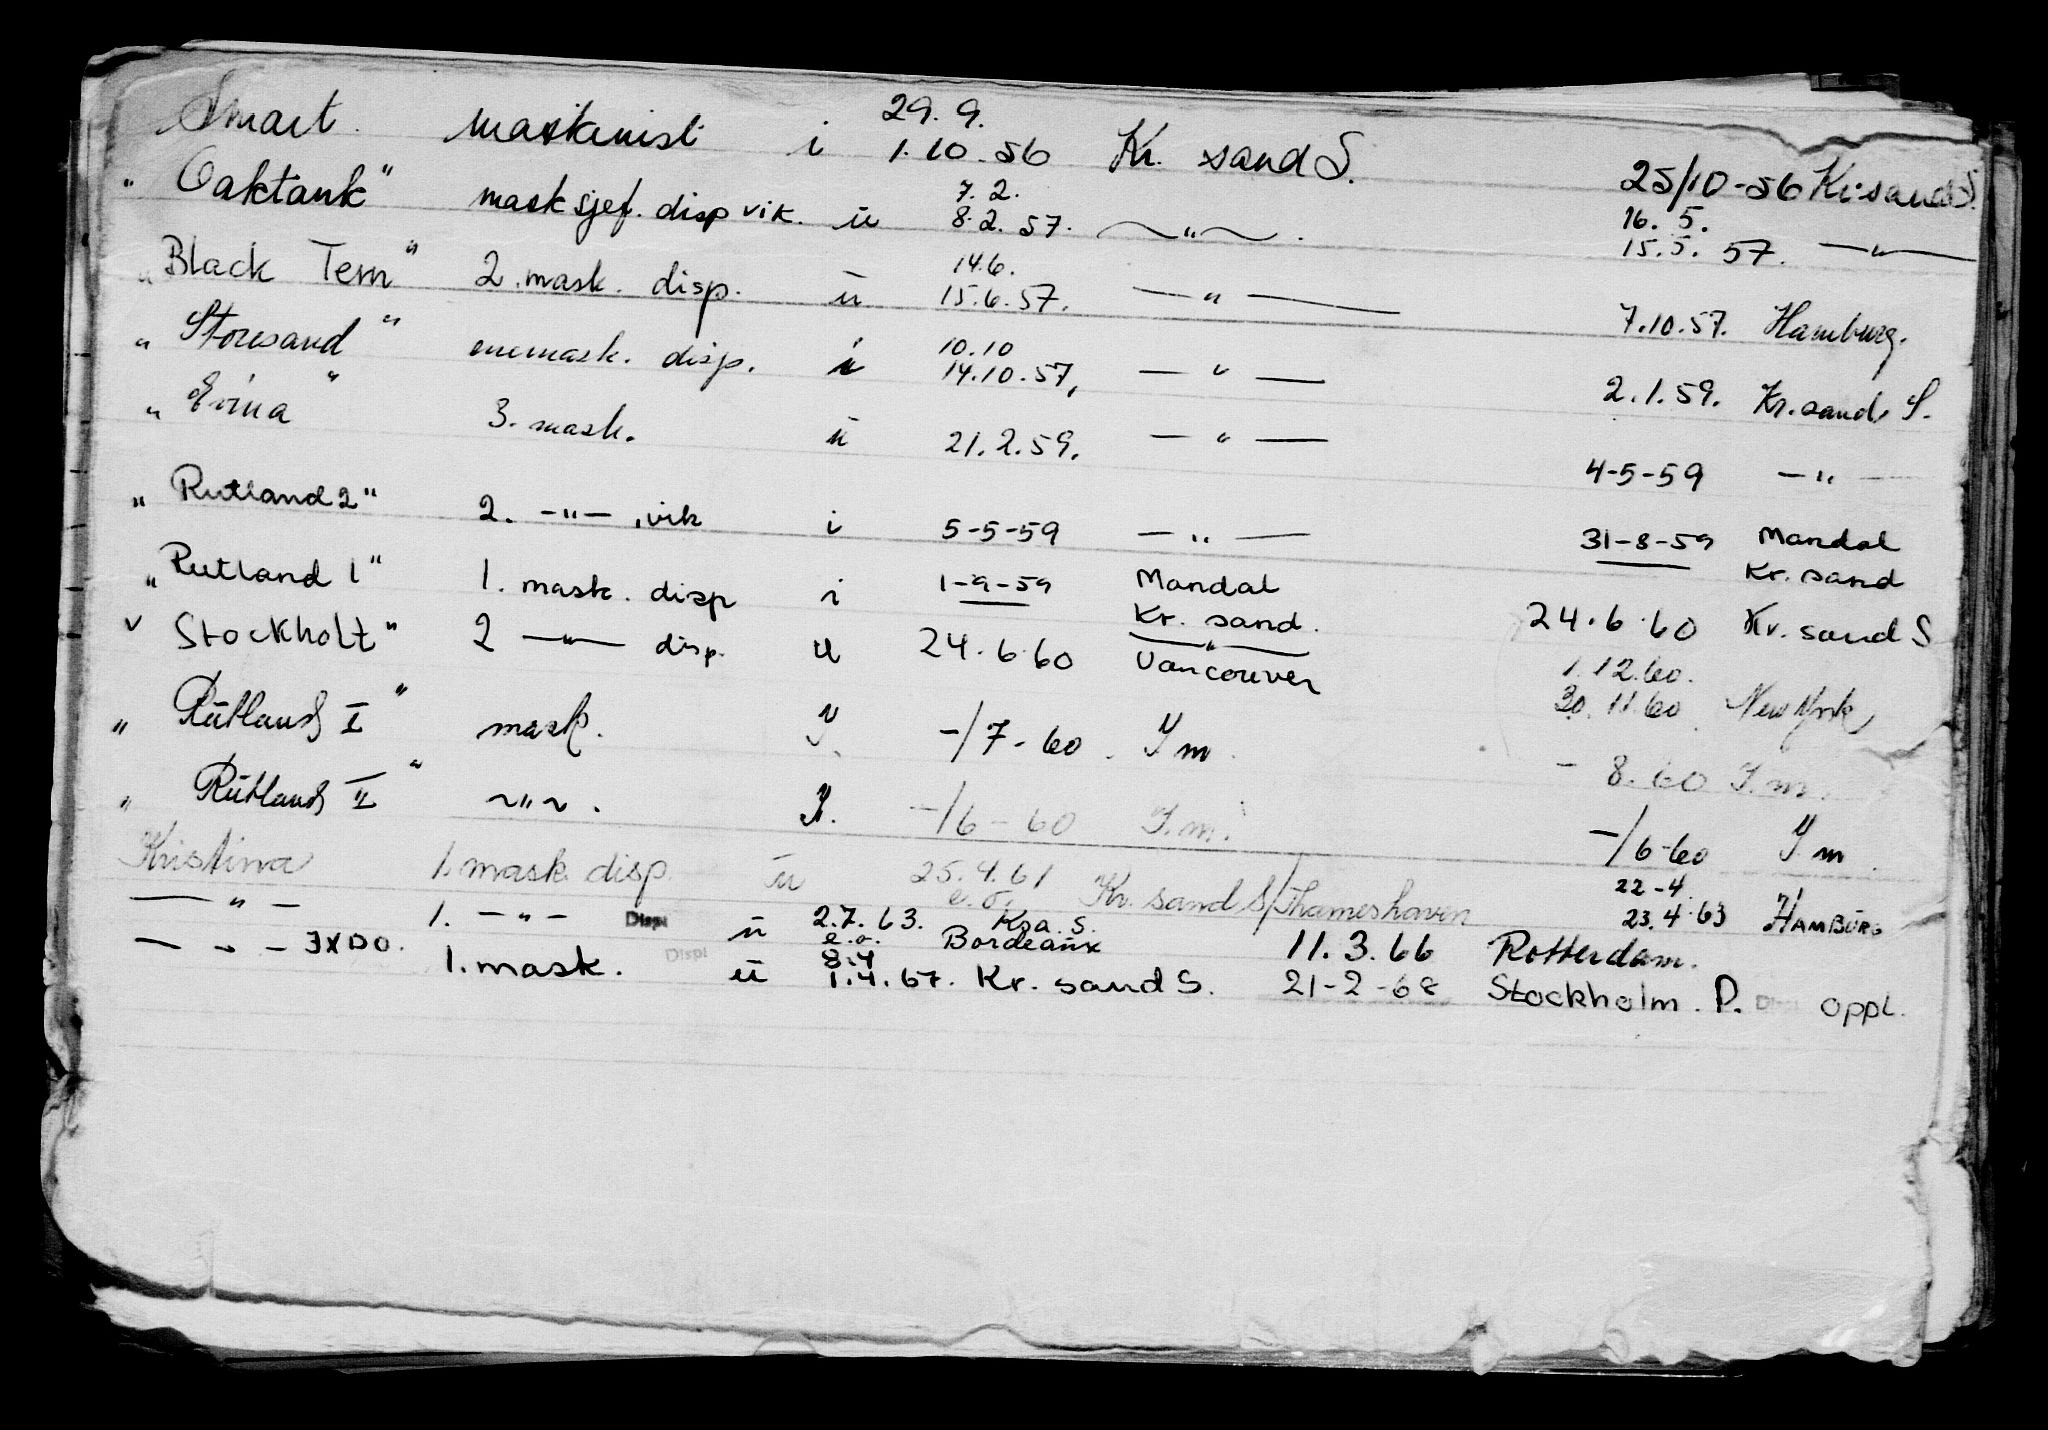 Smart maskinist i 29.9. 1.10-56 Kr. sand S. 25/10-56 Kr.sand S.
" Oaktank " masksjef. disp vik. u 7.2. 8.2.57. —"— 16.5. 15.5.57. —"—
" Black Tern " 2. mask. disp. u 14.6. 15.6.57. —"— 7.10.57. Hamburg.
" Storesand " enemask. disp. i 10.10 14.10.57, —"— 2.1.59. Kr.sand. S.
" Erina " 3. mask. u 21.2.59. —"— 4-5-59 —"—
" Rutland 2 " 2. —"—, vik i 5-5-59 —"— 31-8-59 Mandal
" Rutland 1 " 1. mask. disp i 1-9-59 Mandal Kr. sand
" Stockholt " 2 —"— disp. u 24.6.60 Kr. sand. Vancouver 24.6.60 Kr. sand S
1.12.60. 30.11.60 New York
" Rutland I " mask. I. -/7-60. I m. - 8.60 I.m.
" Rutland II " ~"~. I. -/6-60 I.m. -/6-60 I m
Kristina 1. mask disp. u 25.4.61 e.o. Kr. sand S/Thameshaven 22-4 23.4.63 HAMBURG
—"— 1. —"— Displ u 2.7.63. e.o. Kra. S. Bordeaux 11.3.66 Rotterdam.
—"— JXDO. 1. mask. Displ u 8.4 1.4.67. Kr. sand S. 21-2-68 Stockholm. D. Displ oppl.